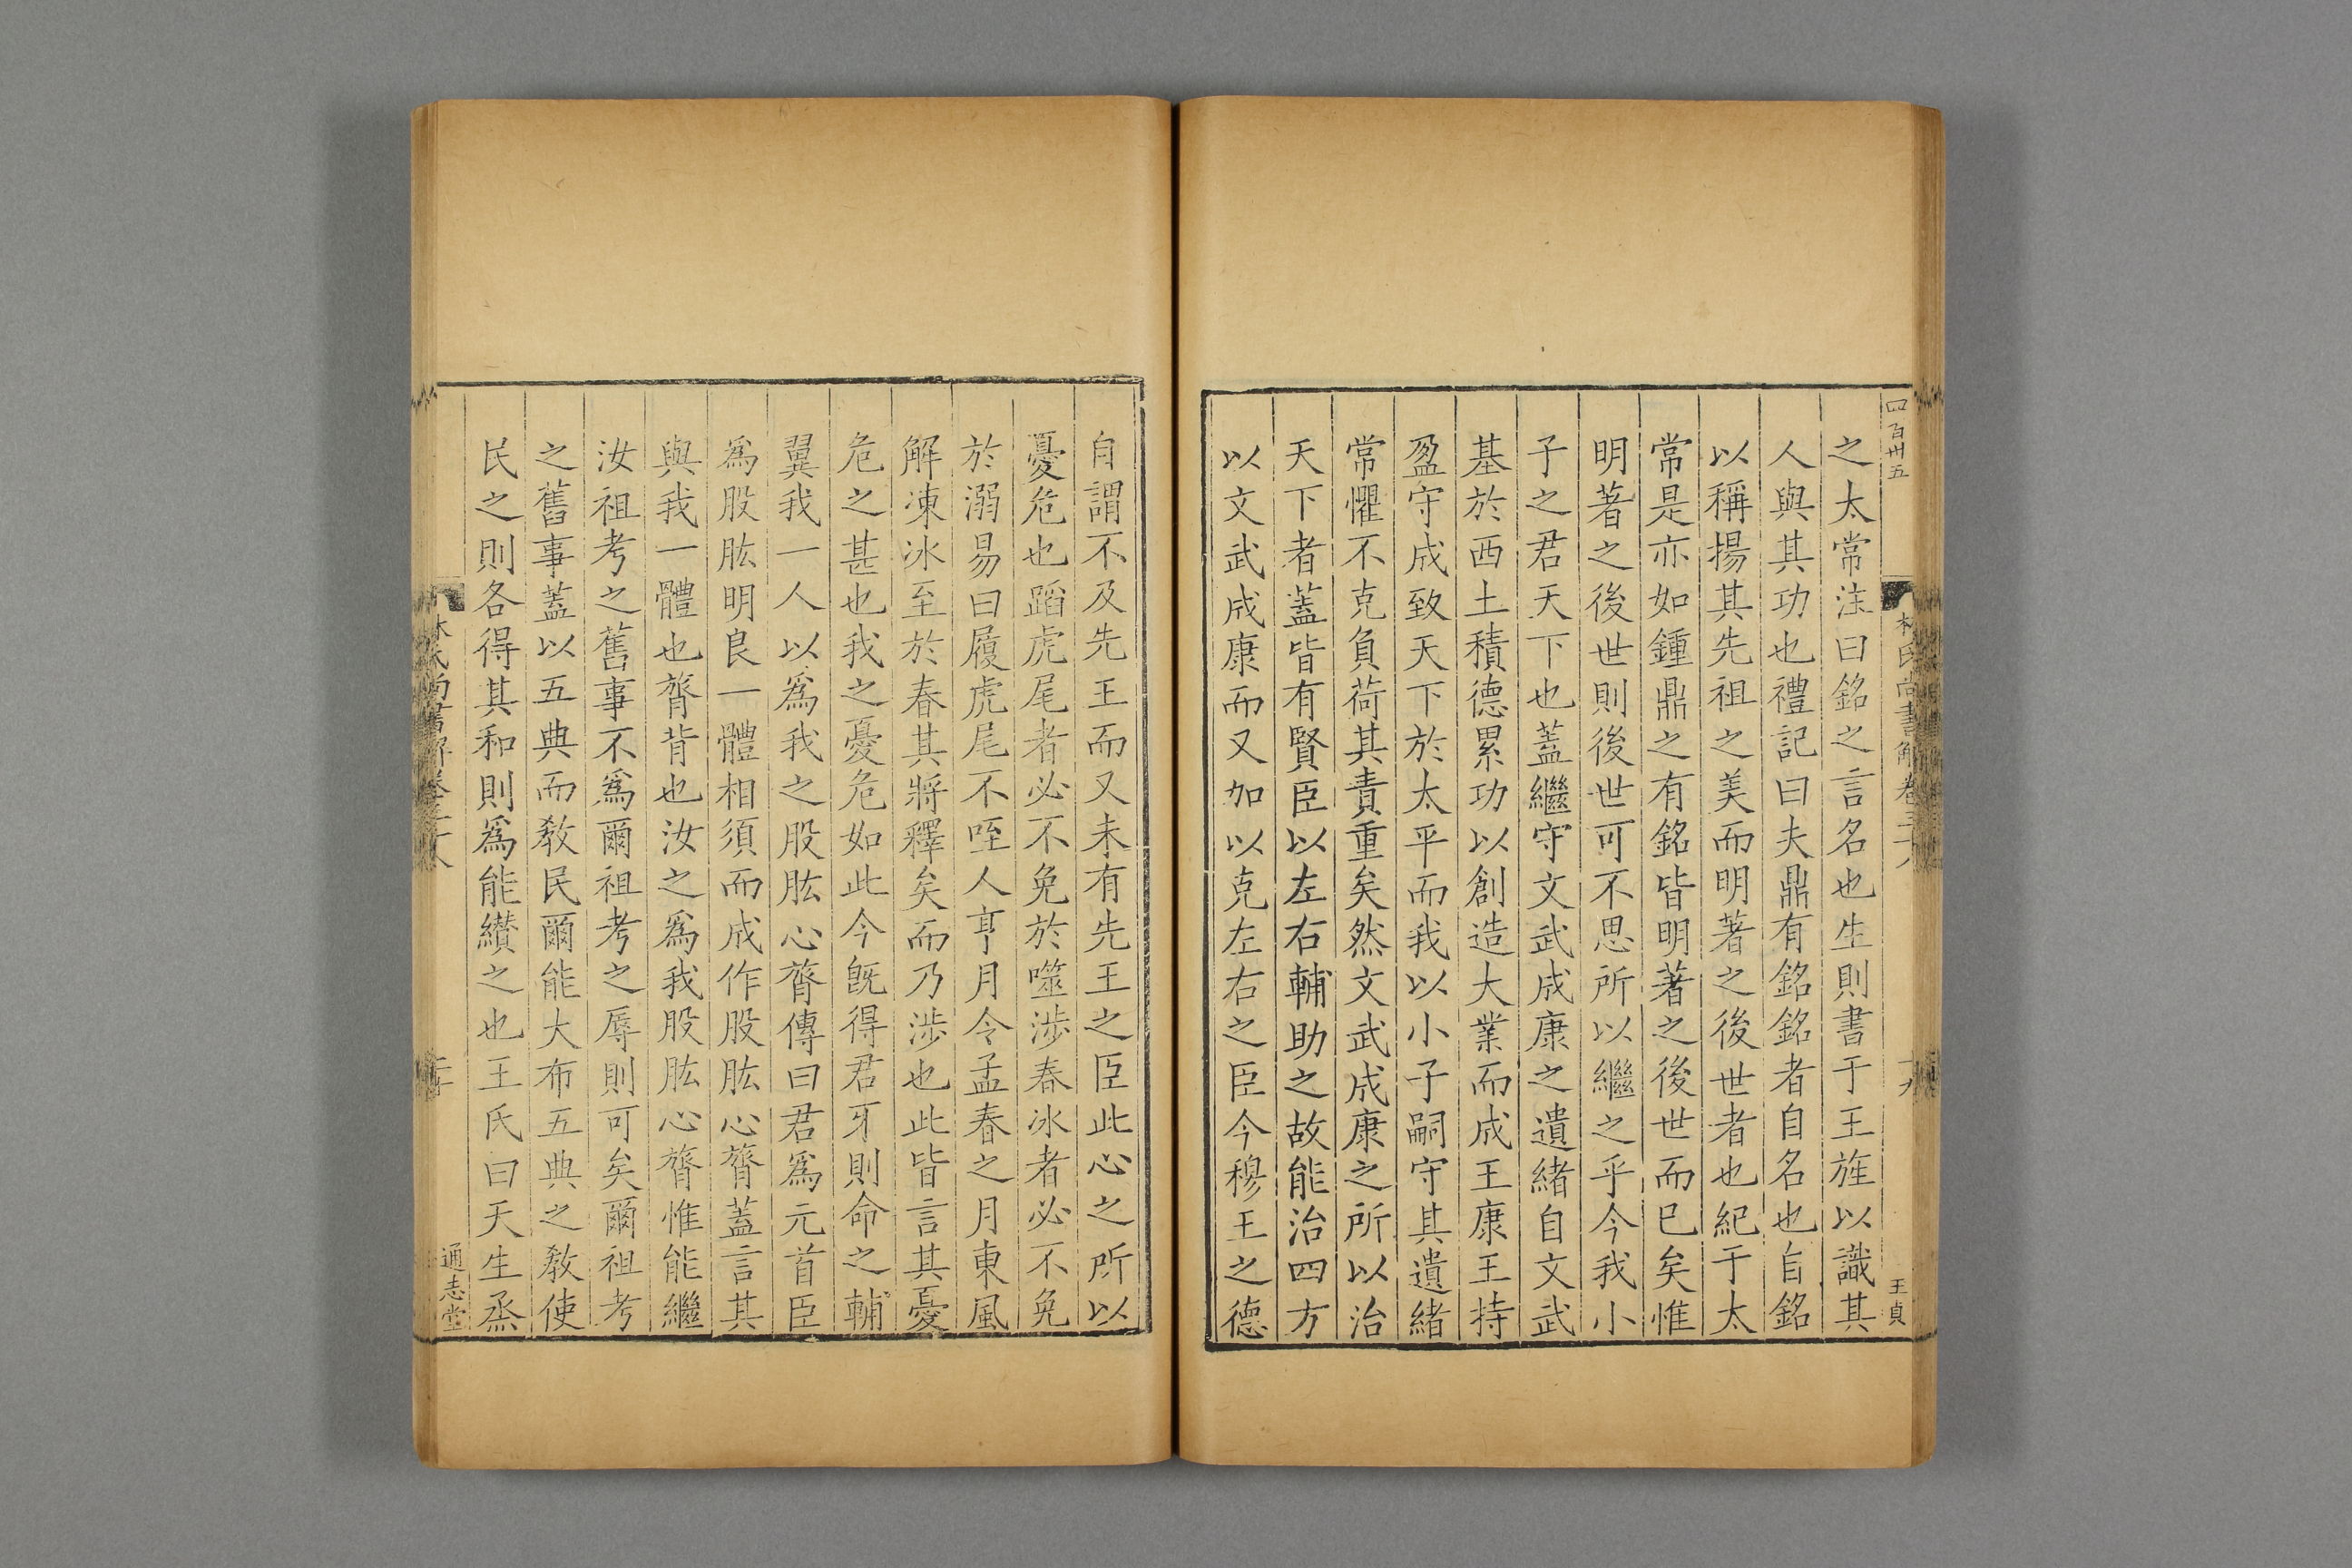 四百卅五
林氏尚書解卷三十八
十九
王貞
之太常注曰銘之言名也生則書于王旌以識其
人與其功也禮記曰夫鼎有銘銘者自名也自銘
以稱揚其先祖之美而明著之後世者也紀于太
常是亦如鍾鼎之有銘皆明著之後世而已矣惟
明著之後世則後世可不思所以繼之乎今我小
子之君天下也蓋繼守文武成康之遺緒自文武
基於西土積德累功以創造大業而成王康王持
盈守成致天下於太平而我以小子嗣守其遺緒
常懼不克負荷其責重矣然文武成康之所以治
天下者蓋皆有賢臣以左右輔助之故能治四方
以文武成康而又加以克左右之臣今穆王之德
自謂不及先王而又未有先王之臣此心之所以
憂危也蹈虎尾者必不免於噬涉春冰者必不免
於溺易曰履虎尾不咥人亨月令孟春之月東風
解凍冰至於春其將釋矣而乃涉也此皆言其憂
危之甚也我之憂危如此今旣得君牙則命之輔
翼我一人以爲我之股肱心膂傳曰君爲元首臣
爲股肱明良一體相須而成作股肱心膂蓋言其
與我一體也膂背也汝之爲我股肱心膂惟能繼
汝祖考之舊事不爲爾祖考之辱則可矣爾祖考
之舊事蓋以五典而敎民爾能大布五典之敎使
民之則各得其和則爲能纉之也王氏曰天生烝
林氏尚書解卷三十八
二十
通志堂